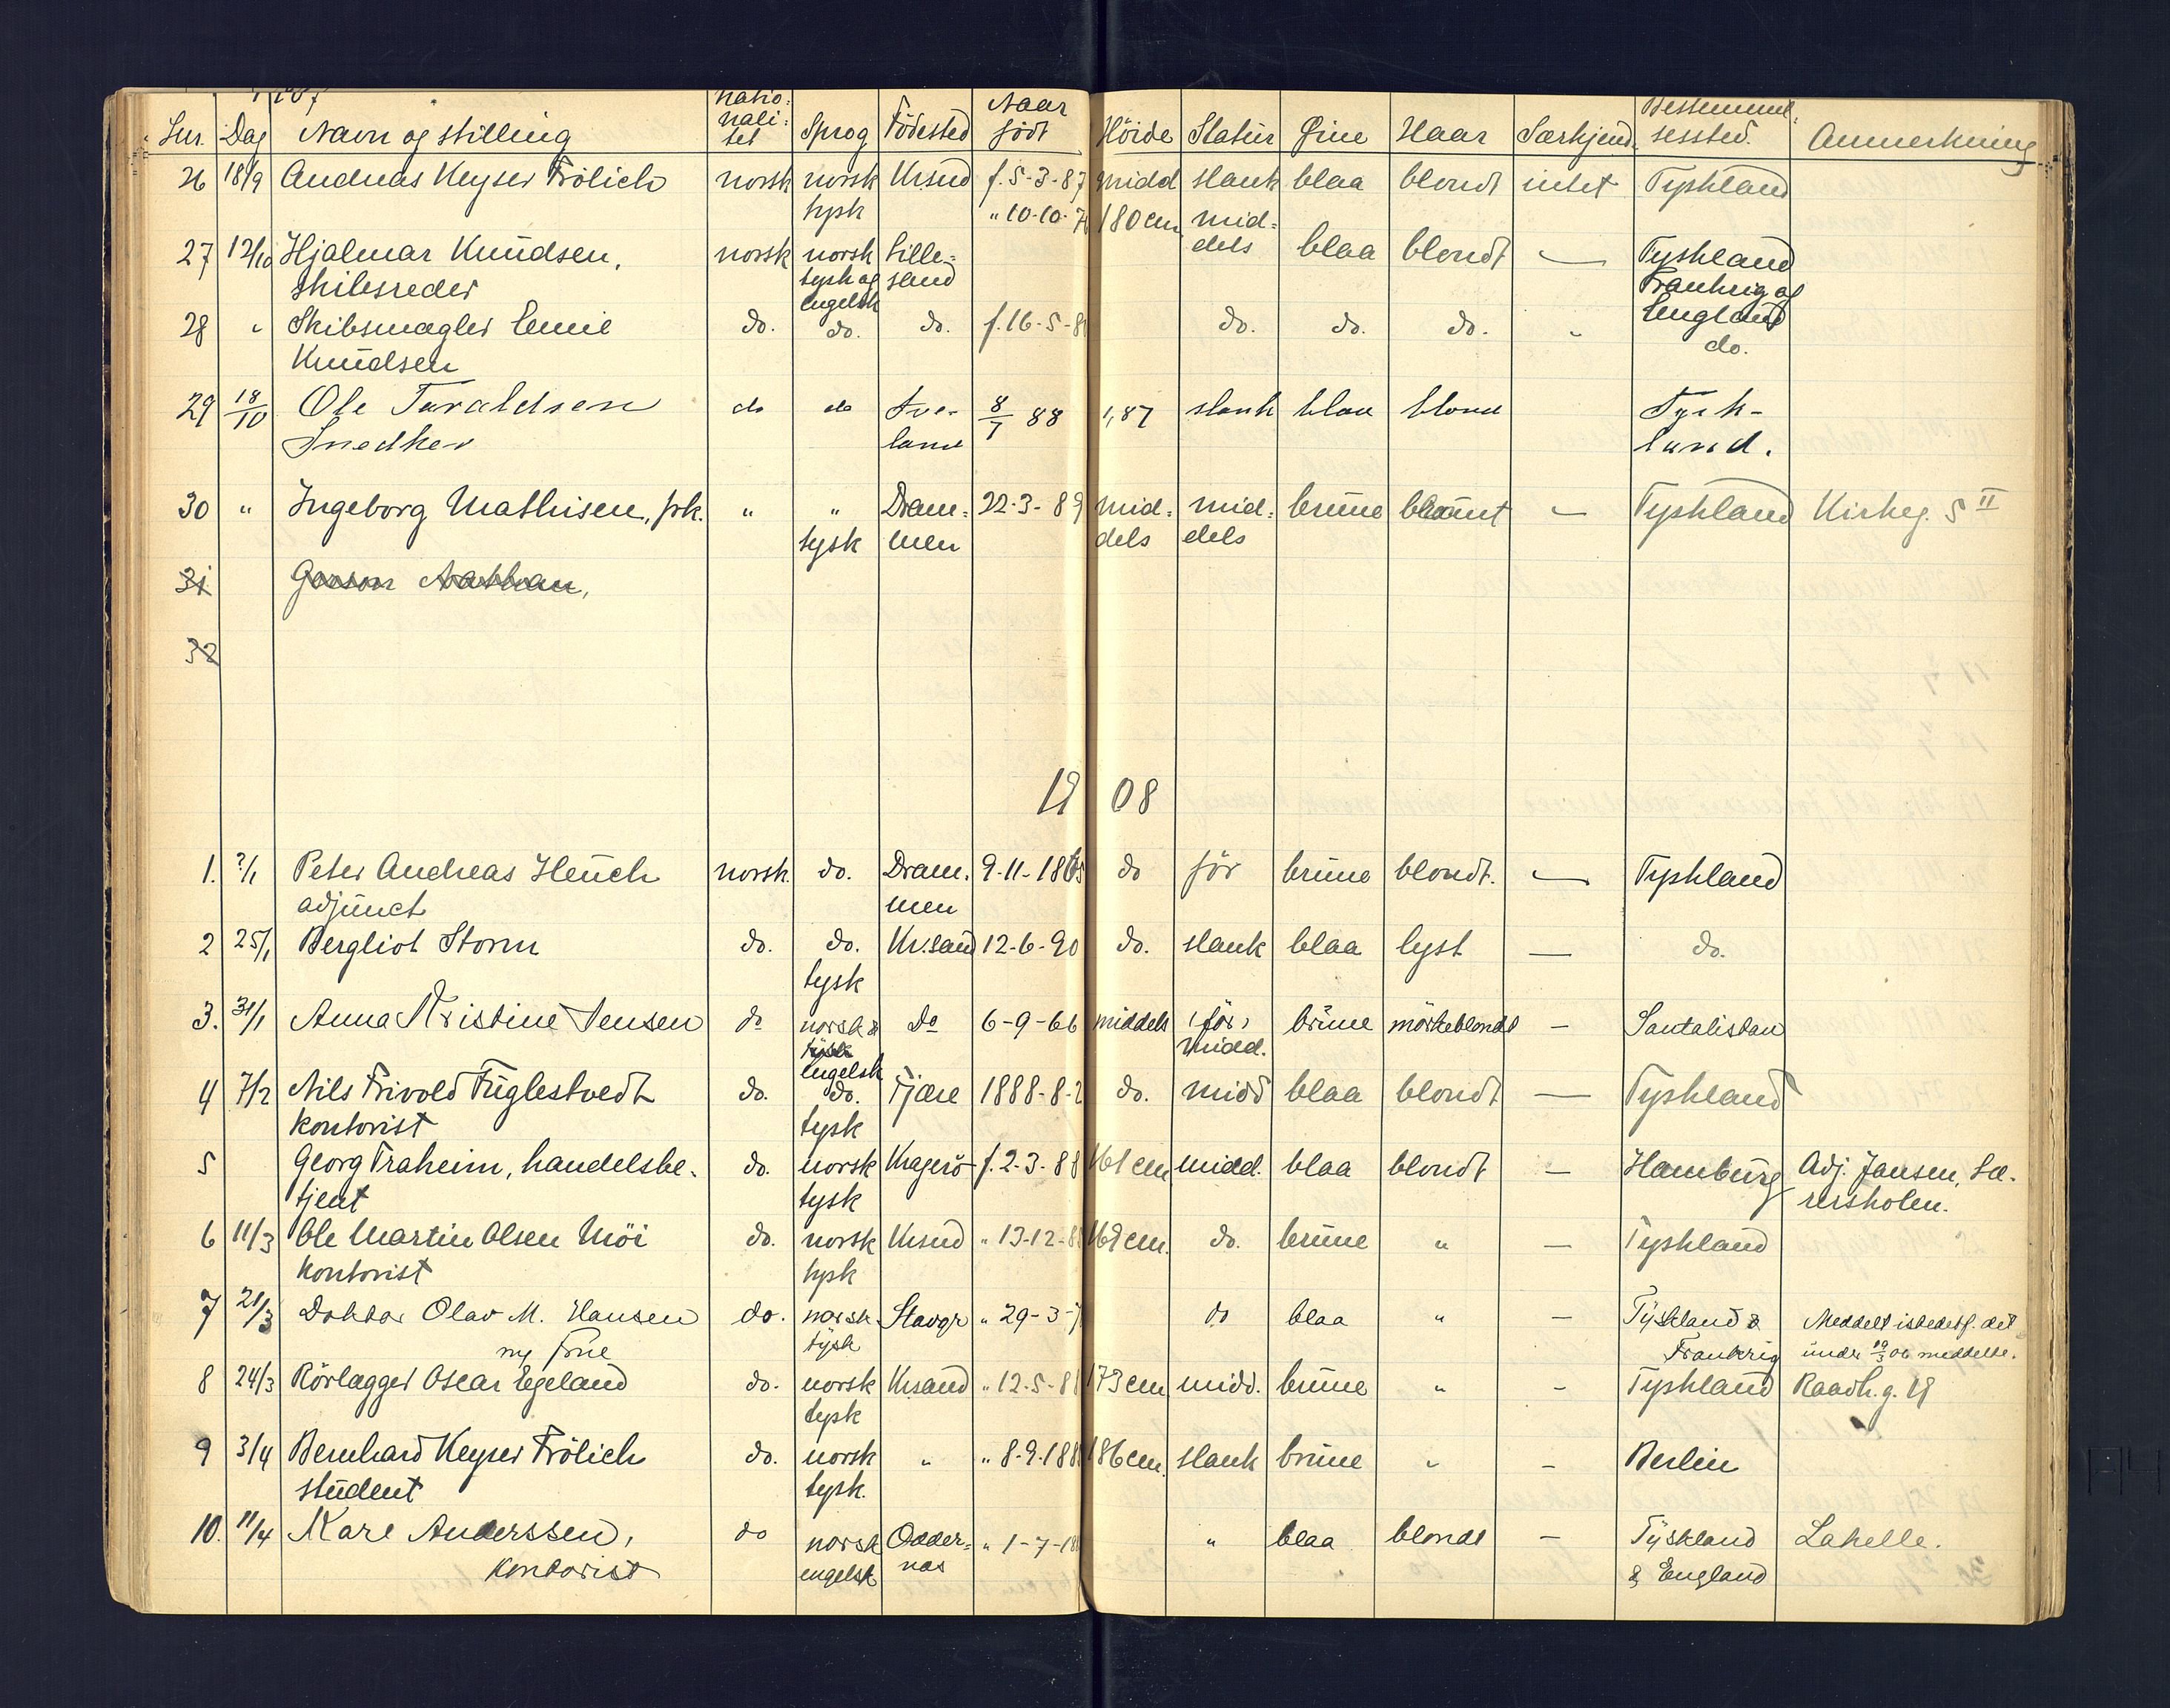 Lnr. Dag Navn og stilling Natio: nali: tet Sprog Födested Naar födt Höide Statur Øine Haar Særkjend. Bestemmel: sessted. Anmerkning
26 18/9 Andreas Keyser Frölich norsk norsk Krsnd f. 5-3-87 midd slank blaa blondt intet Tyskland
tysk " 10-10- 180 cm mid:
27 12/10 Hjalmar Knudsen, norsk norsk Lille: dels blaa blondt — Tyskland
skibsreder tysk og sand Frankrig og
28 " Skibsmægler Emil do. engelsk do. do. f. 16-5-8 do. do. do. " England
Knudsen do.
29 18/10 Ole Taraldsen do do Tve- 8/7 88 1,87 slank blaa blond Tysk-
Snedker land.
30 " Ingeborg Mathisen, frk. " " Dram: 22-3-89 mid: mid: brune — Tyskland Kirkeg. 5 II
tysk men dels dels
31 Gerson Nathan,
32
1908
1. ?/1 Peter Andreas Heuch norsk. do. Dram. 9-11-1865 do för brune blondt. — Tyskland
adjunct men
2 25/1 Bergliot Storm do. do. Kr.sand 12-6-90 do. slank blaa lyst — do.
tysk
3. 31/1 Anna Kristine Jensen do norsk & Do 6-9-66 middels (för) brune mörkeblondt — Santalistan
tysk midd.
engelsk
4 7/2 Nils Trivold Fuglestvedt do. do. Fjære 1888-8-2 do. midd blaa blondt — Tyskland
kontorist tysk
5 Georg Traheim, handelsbe- do. norsk Kragerö f. 2-3-88 161 cm midd. blaa blondt — Hamburg Adj. Jansen, Læ-
tjent tysk rerskolen.
6 11/3 Ole Martin Olsen Möi do. norsk Krsnd " 13-12-8 168 cm. do. brune " — Tyskland
kontorist tysk
7 21/3 Doktor Olav M. Hansen do. norsk Stavgr " 29-3-7 do blaa " — Tyskland & Meddelt istedetf. det
m/ frue tysk Frankrig under 19/3 06 meddelte.
8 24/3 Rörlægger Oscar Egeland do. norsk Krsand " 12-5-8 173 cm midd. brune " — Tyskland Raadh. g. 19
tysk
9 3/4 Bernhard Keyser Frölich do. norsk " " 8-9-188 186 cm. slank brune " — Berlin
student tysk.
10. 11/4 Karl Anderssen, do norsk Odder= " 1-7-18 " blaa blondt — Tyskland Lahelle.
kontorist engelsk næs & England